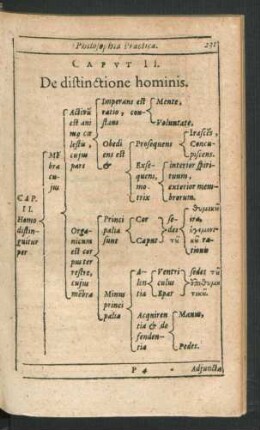 Philosophia Practica. 231
CAPVT II.
De distinctione hominis.
CAP.
II.
Homo
distin-
guitur
per
Mē
bra
cu-
jus
Activū
est ani
mo cœ
lestu,
cujus
par
Imperans est
ratio, con-
stans
Mente,
Voluntate,
Obedi
ens est
&
Prosequens
Irascēs.
Concu-
piscens.
Exse-
quens,
mo-
trix
interior spiri-
tuum,
exterior mem-
brorum.
Orga-
nicum
est cor
pus ter
restre,
cujus
mēbra
Princi
palia
sunt
Cor
Caput
se-
des
ira,
ra-
tionis
Minus
princi
palia
A-
len-
tia
Ventri
culus
Epar
sedes
Acquiren
tia & de
fenden-
tia
Manus,
Pedes.
P 4 Adjuncta